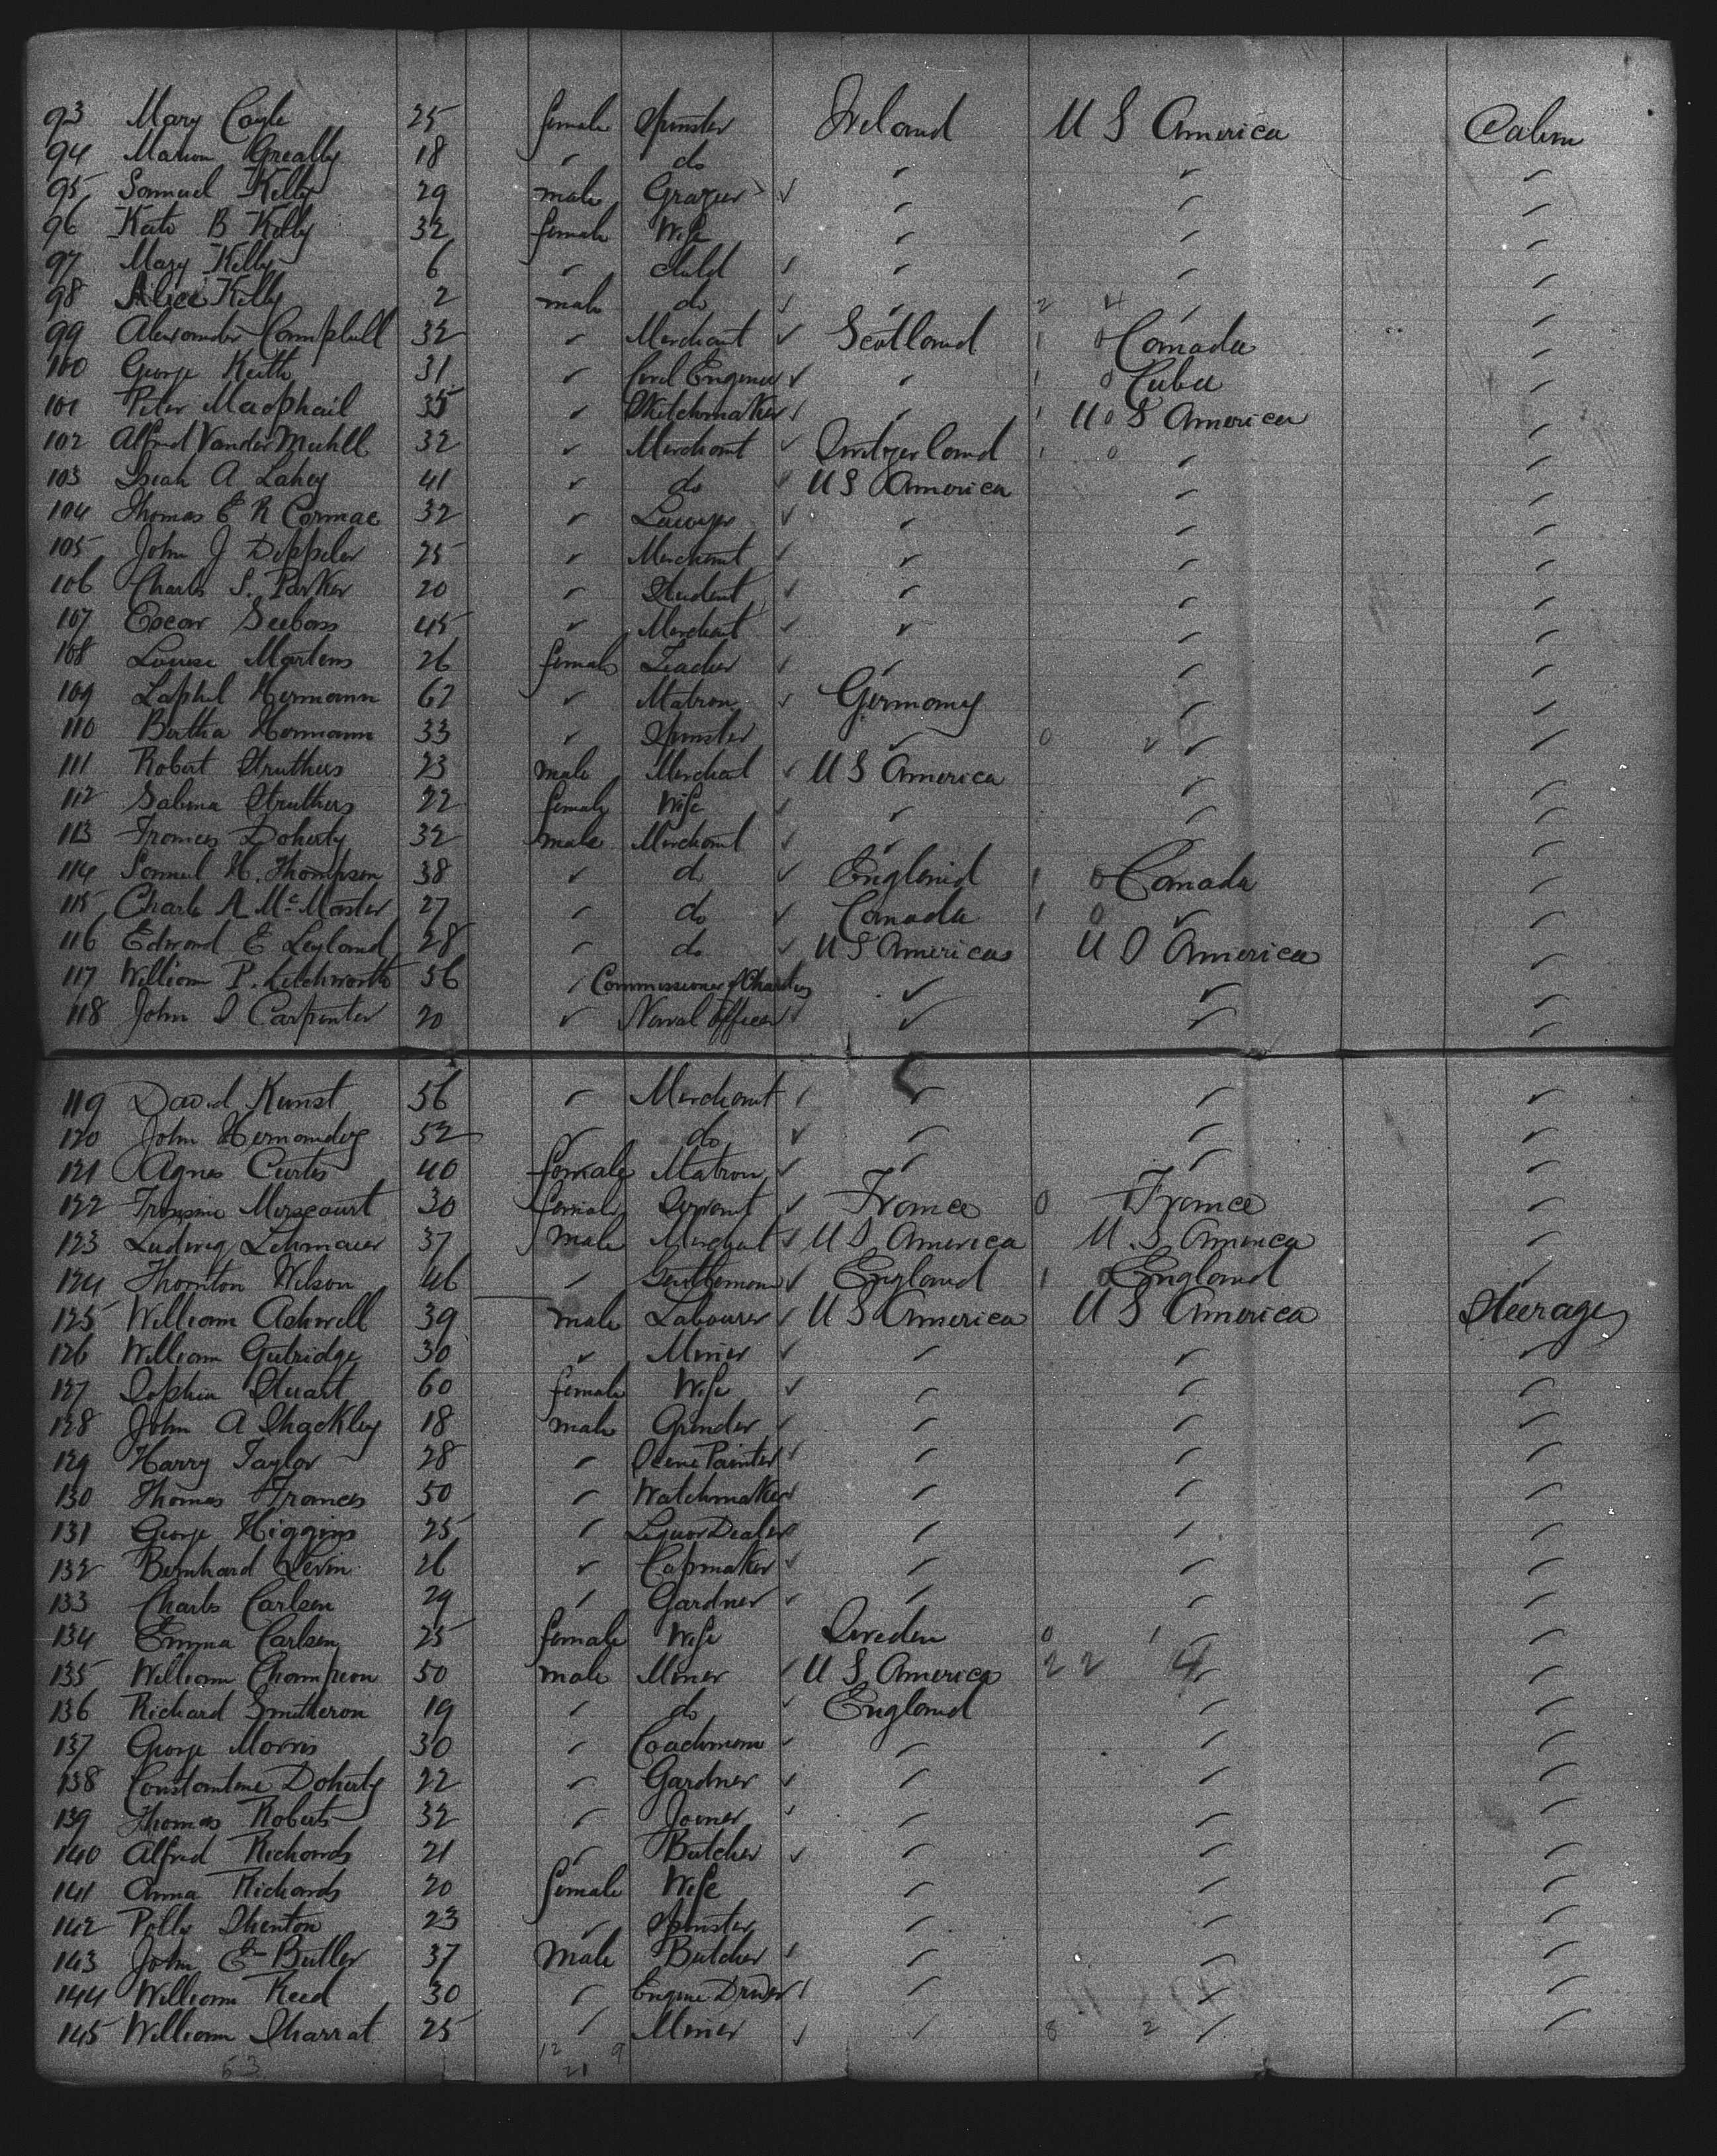 93 Mary Coyle 25 female Spinster Ireland U S America Cabin
94 Marion Greally 18 " do " " "
95 Samuel Kelly 29 male Grazier " " "
96 Kate B Kelly 32 female Wife " " "
97 Mary Kelly 6 " child " " "
98 Alice Kelly 2 male do " 2 4 " "
99 Alexander Campbell 32 " Merchant Scotland 1 0 Canada "
100 George Keith 31 " Civil Engineer " 1 0 Cuba "
101 Peter Macphail 35 " " 1 0 U S America "
102 Alfred VanderMuhll 32 " Merchant Switzerland 1 0 " "
103 Isiah A Lahey 41 " do U S America " "
104 Thomas E R Cormac 32 " Lawyer " " "
105 John J Deppeler 25 " Merchant " " "
106 Charles S. Parker 20 " Student " " "
107 Oscar Seebass 45 " Merchant " " "
108 Louise Martens 26 female Teacher " " "
109 Hermann 67 " Matron Germany " "
110 Bertha Hermann 33 " Spinster " 0 2 " "
111 Robert Struthers 23 male Merchant U S America " "
112 Sabina Struthers 22 female Wife " " "
113 Frances Doherty 32 male Merchant " " "
114 Samuel H. Thompson 38 " do England 1 0 Canada "
115 Charls A McMaster 27 " do Canada 1 0 " "
116 Edward E Leyland 28 " do U S America U S America "
117 William P. Letchworth 56 " Commissioner of Charities " " "
118 John S Carpenter 20 " Naval Officer " " "
119 David Kunst 56 " Merchant " " "
120 John Hernandez 52 " do " " "
121 Agnes Curtis 40 female Matron " " "
122 Merscourt 30 female Servant France 0 1 France "
123 Ludwig Lehmaier 37 male Merchant U S America U. S America "
124 Thornton Wilson 46 " Gentleman England 1 0 England "
125 William Ashwell 39 male Labourer U S America U S America Steerage
126 William Gutridge 30 " Miner " " "
127 Sophia Stuart 60 female Wife " " "
128 John A Shackley 18 male Grinder " " "
129 Harry Taylor 28 " Scene Painter " " "
130 Thomas Frances 50 " Watchmaker " " "
131 George Higgins 25 " Liquor Dealer " " "
132 Bernhard Levin 26 " Capmaker " " "
133 Charls Carlsen 29 " Gardner " " "
134 Emma Carlsen 25 female Wife Sweden 0 1 " "
135 William Champion 50 male Miner U S America 22 4 " "
136 Richard Smitheron 19 " do England " "
137 George Morris 30 " Coachman " " "
138 Constantine Doherty 22 " Gardner " " "
139 Thomas Roberts 32 " Joiner " " "
140 Alfred Richards 21 " Butcher " " "
141 Anna Richards 20 female Wife " " "
142 Polly Shenton 23 " Spinster " " "
143 John E Butler 37 Male Butcher " " "
144 William Reed 30 " Engine Driver " " "
145 William Sharrat 25 " Miner " 8 2 " "
53 12 9
21